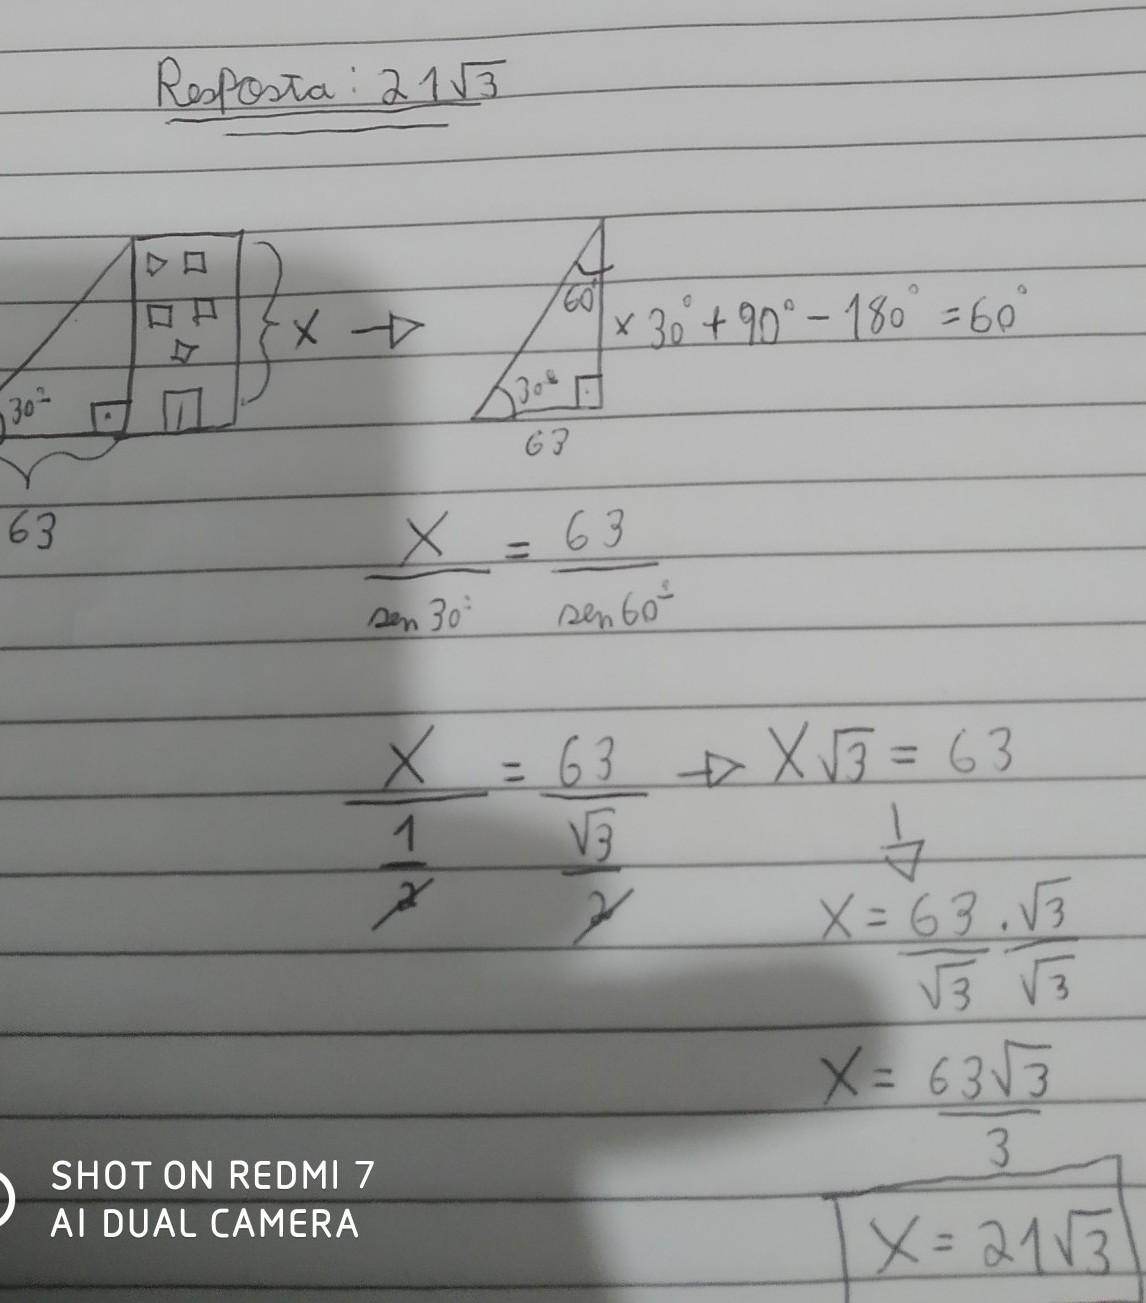 Resposta: 21√3
x → 60° x 30° + 90° - 180° = 60°
30° 30°
63 63
x/sen 30° = 63/sen 60°
x/(1/2) = 63/(√3/2) → x√3 = 63
x = 63/√3 . √3/√3
x = 63√3/3
x = 21√3
SHOT ON REDMI 7
AI DUAL CAMERA